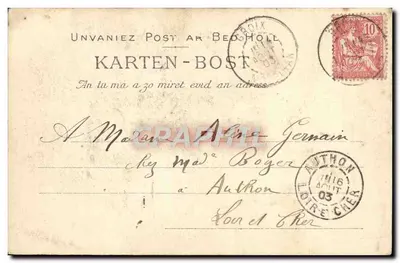 UNVANIEZ POST AR BED HOLL
KARTEN-BOST
An tu ma a zo miret evid an adres
GROIX
10
A Madame Aline Germain
chez Mad^e Boger
à Authon
Loir et Cher
AUTHON
16
AOUT
03
LOIR-ET-CHER